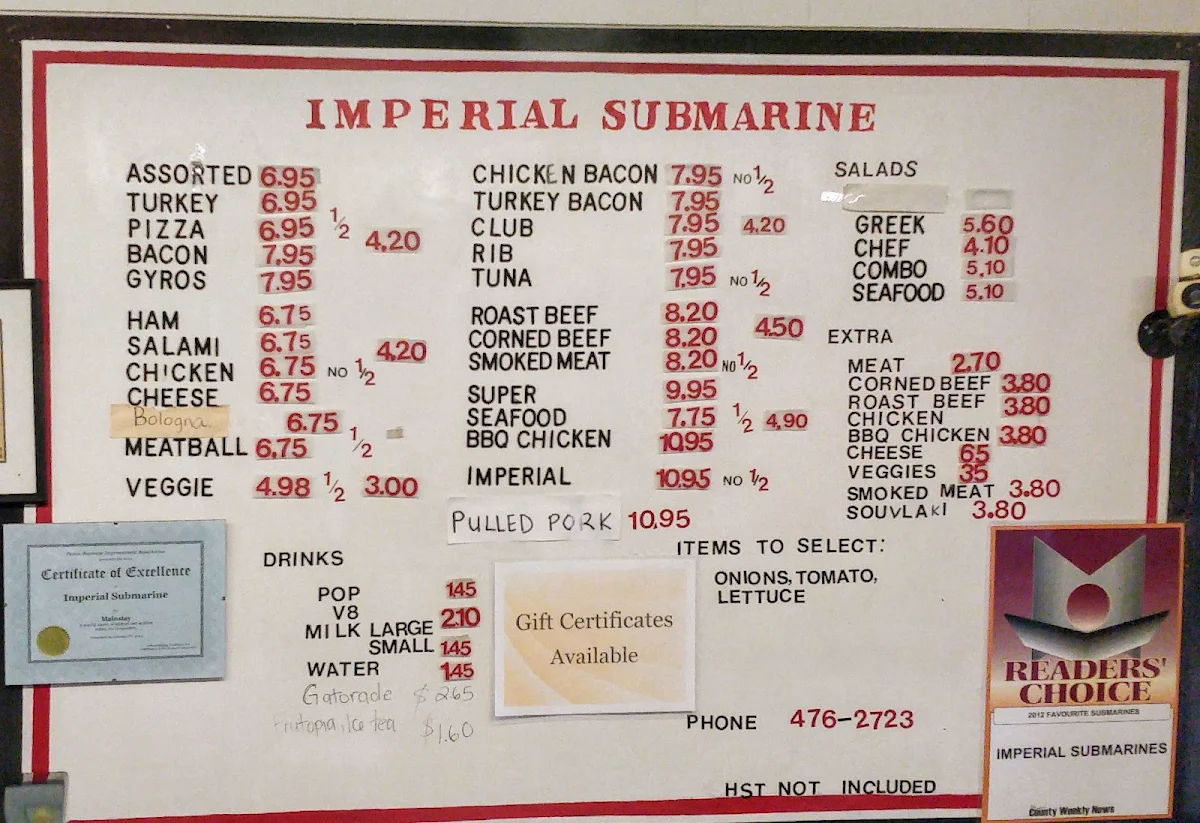 IMPERIAL SUBMARINE
ASSORTED 6.95
TURKEY 6.95
PIZZA 6.95 1/2 4.20
BACON 7.95
GYROS 7.95
HAM 6.75
SALAMI 6.75 4.20
CHICKEN 6.75 NO 1/2
CHEESE 6.75
Bologna 6.75
MEATBALL 6.75 1/2
VEGGIE 4.98 1/2 3.00
CHICKEN BACON 7.95 NO 1/2
TURKEY BACON 7.95
CLUB 7.95 4.20
RIB 7.95
TUNA 7.95 NO 1/2
ROAST BEEF 8.20
CORNED BEEF 8.20 4.50
SMOKED MEAT 8.20 NO 1/2
SUPER 9.95
SEAFOOD 7.75 1/2 4.90
BBQ CHICKEN 10.95
IMPERIAL 10.95 NO 1/2
PULLED PORK 10.95
SALADS
GREEK 5.60
CHEF 4.10
COMBO 5.10
SEAFOOD 5.10
EXTRA
MEAT 2.70
CORNED BEEF 3.80
ROAST BEEF 3.80
CHICKEN
BBQ CHICKEN 3.80
CHEESE 65
VEGGIES 35
SMOKED MEAT 3.80
SOUVLAKI 3.80
DRINKS
POP 1.45
V8 2.10
MILK LARGE
SMALL 1.45
WATER 1.45
Gatorade $2.65
Frutopia, Ice tea $1.60
Gift Certificates
Available
ITEMS TO SELECT:
ONIONS, TOMATO,
LETTUCE
PHONE 476-2723
HST NOT INCLUDED
Certificate of Excellence
Imperial Submarine
Mainstay
READERS'
CHOICE
2012 FAVOURITE SUBMARINES
IMPERIAL SUBMARINES
County Weekly News